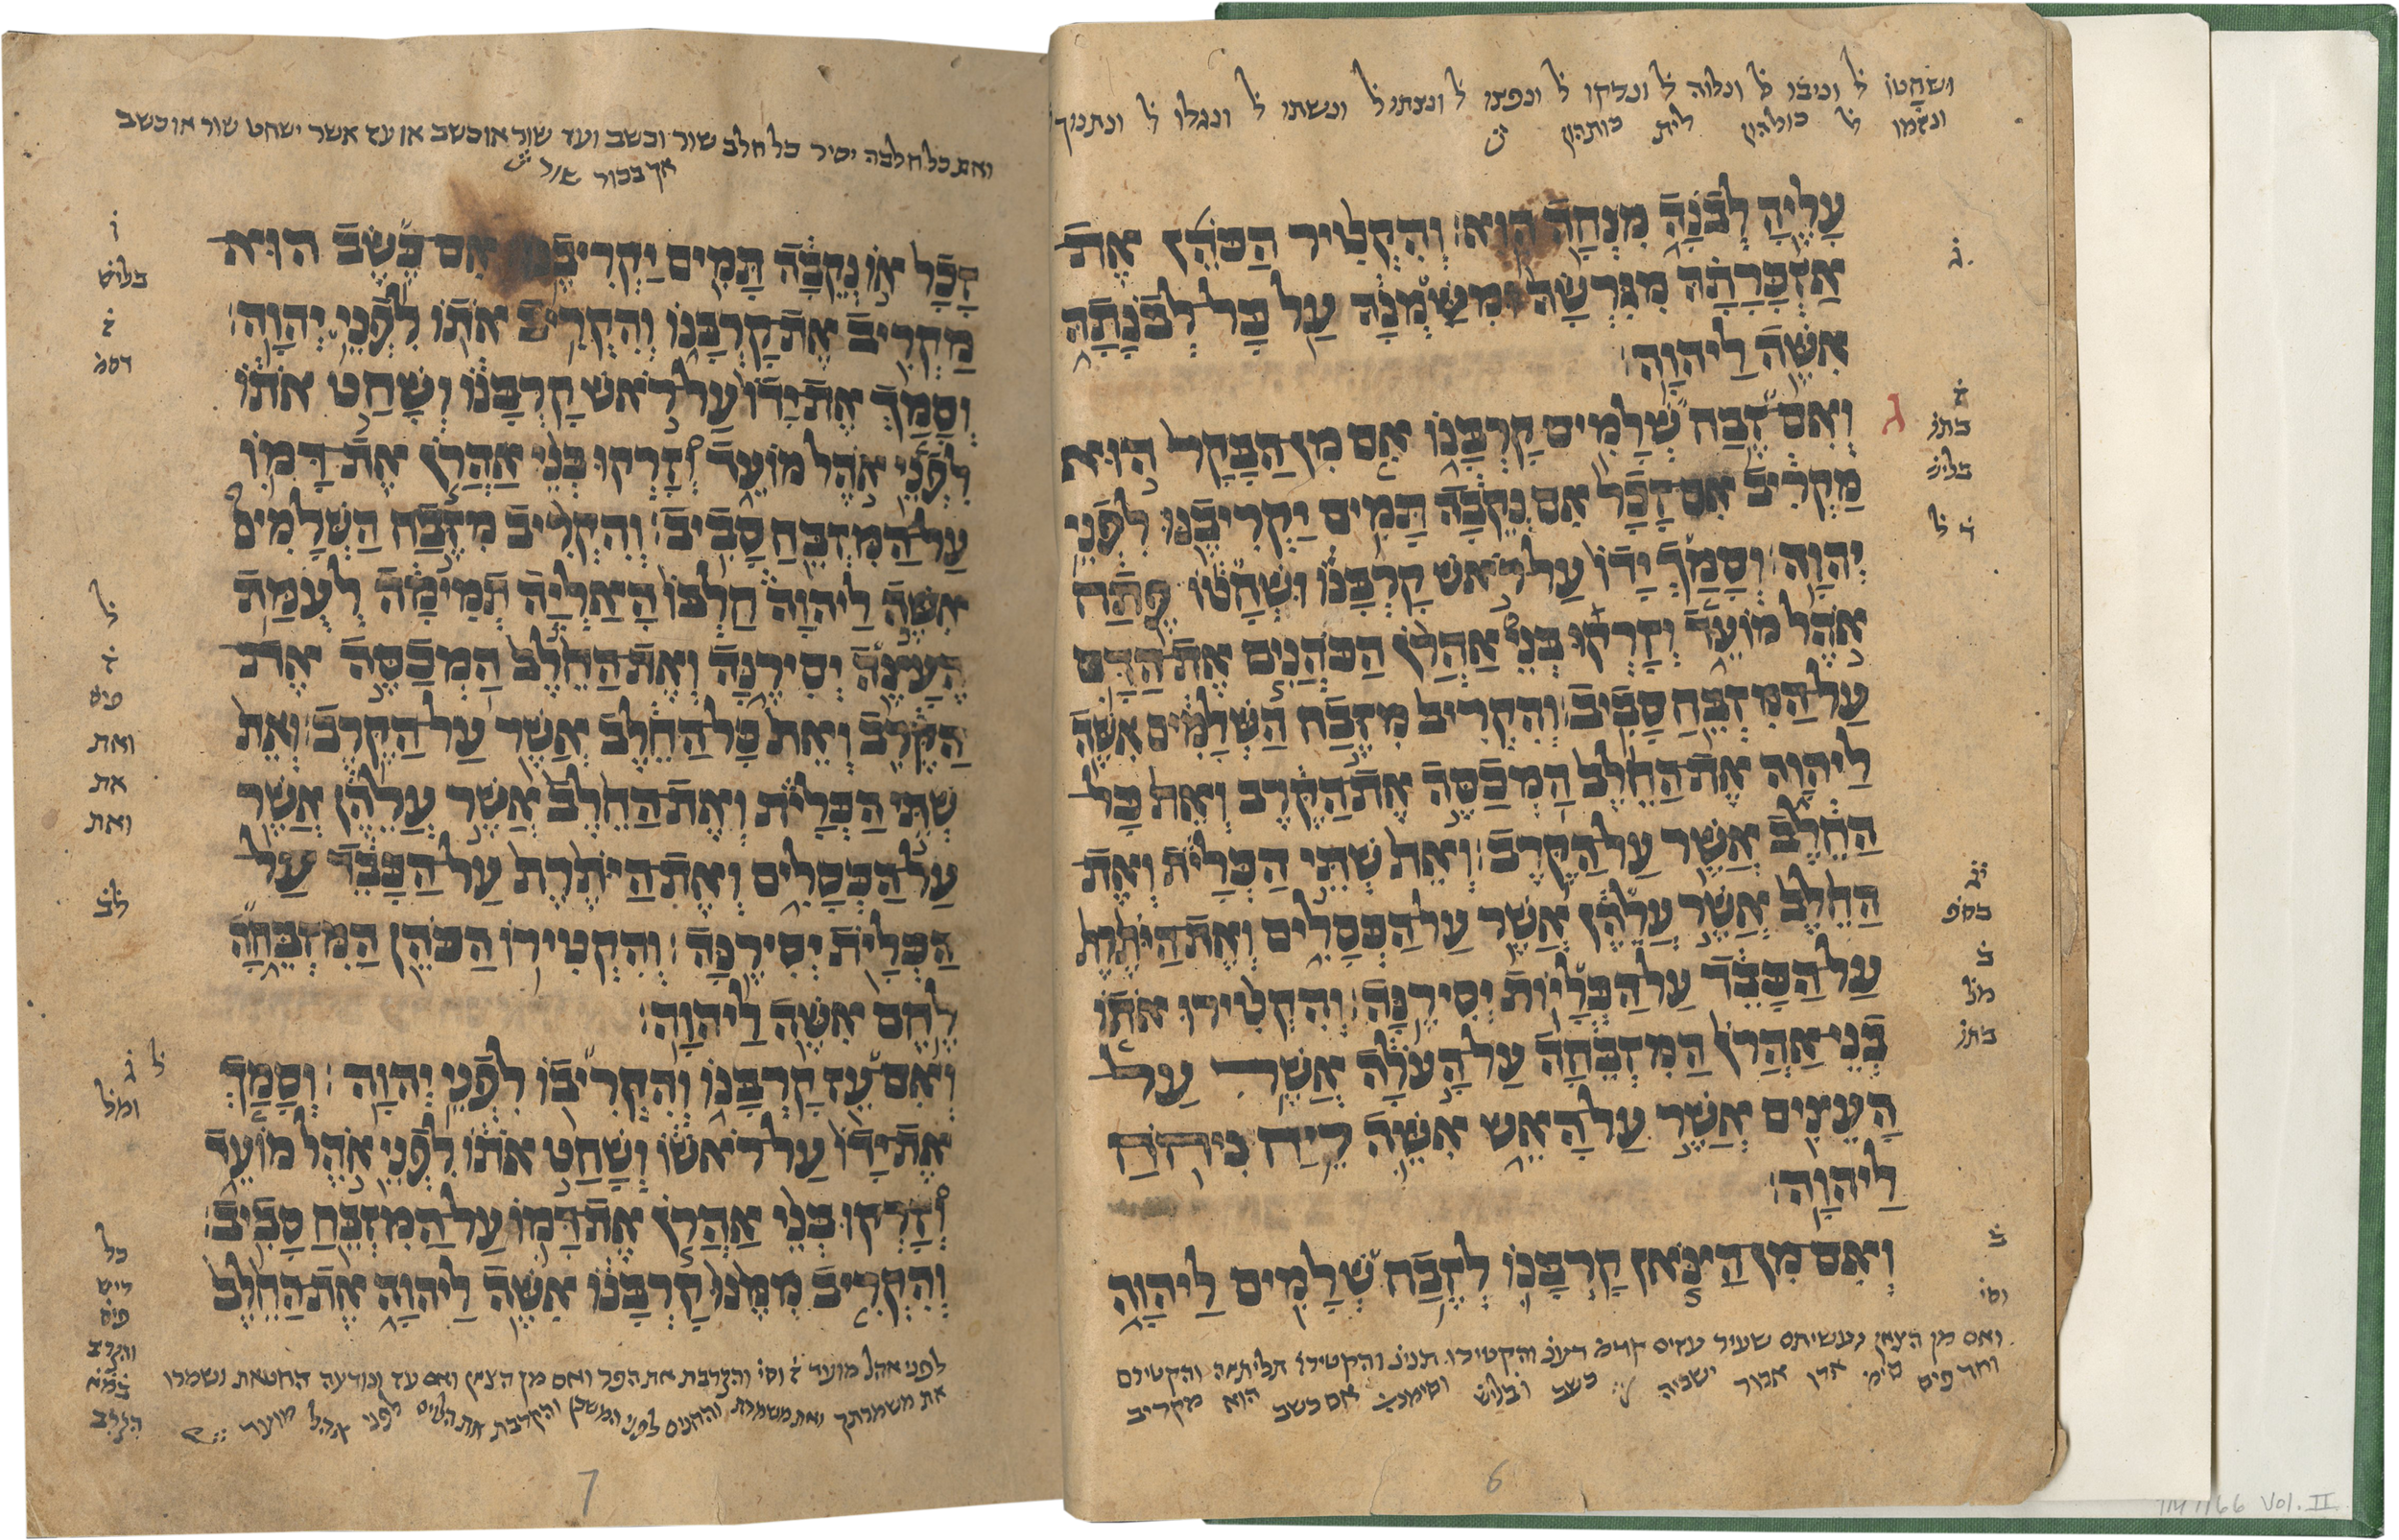 ושחטו ל וניבו ל ונלוה ל ונלקו ל ונפצו ל ונצתו ל ונשתו ל ונגלו ל ונתנך
ונזמו ל כולהון לית כותהון
עָלֶיהָ לְבֹנָה מִנְחָה הִוא׃ וְהִקְטִיר הַכֹּהֵן אֶת־
אַזְכָּרָתָהּ מִגִּרְשָׂהּ וּמִשַּׁמְנָהּ עַל כָּל־לְבֹנָתָהּ
אִשֶּׁה לַיהוָה׃
וְאִם־זֶבַח שְׁלָמִים קָרְבָּנוֹ אִם מִן־הַבָּקָר הוּא
מַקְרִיב אִם־זָכָר אִם־נְקֵבָה תָּמִים יַקְרִיבֶנּוּ לִפְנֵי
יְהוָה׃ וְסָמַךְ יָדוֹ עַל־רֹאשׁ קָרְבָּנוֹ וּשְׁחָטוֹ פֶּתַח
אֹהֶל מוֹעֵד וְזָרְקוּ בְּנֵי אַהֲרֹן הַכֹּהֲנִים אֶת־הַדָּם
עַל־הַמִּזְבֵּחַ סָבִיב׃ וְהִקְרִיב מִזֶּבַח הַשְּׁלָמִים אִשֶּׁה
לַיהוָה אֶת־הַחֵלֶב הַמְכַסֶּה אֶת־הַקֶּרֶב וְאֵת כָּל־
הַחֵלֶב אֲשֶׁר עַל־הַקֶּרֶב׃ וְאֵת שְׁתֵּי הַכְּלָיֹת וְאֶת־
הַחֵלֶב אֲשֶׁר עֲלֵהֶן אֲשֶׁר עַל־הַכְּסָלִים וְאֶת־הַיֹּתֶרֶת
עַל־הַכָּבֵד עַל־הַכְּלָיוֹת יְסִירֶנָּה׃ וְהִקְטִירוּ אֹתוֹ
בְנֵי־אַהֲרֹן הַמִּזְבֵּחָה עַל־הָעֹלָה אֲשֶׁר עַל־
הָעֵצִים אֲשֶׁר עַל־הָאֵשׁ אִשֵּׁה רֵיחַ נִיחֹחַ
לַיהוָה׃
וְאִם־מִן־הַצֹּאן קָרְבָּנוֹ לְזֶבַח שְׁלָמִים לַיהוָה
ואם מן הצאן נעשיתם שעיר עזים והקטירו תנינ והקטירו תליתיה והקטירם
אם כשב הוא מקריב
ג
6
ואת כל חלבה יסיר כל חלב שור וכשב ועז שור או כשב או עז אשר ישחט שור או כשב
אך בכור שור
זָכָר אוֹ נְקֵבָה תָּמִים יַקְרִיבֶנּוּ׃ אִם־כֶּשֶׂב הוּא־
מַקְרִיב אֶת־קָרְבָּנוֹ וְהִקְרִיב אֹתוֹ לִפְנֵי יְהוָה׃
וְסָמַךְ אֶת־יָדוֹ עַל־רֹאשׁ קָרְבָּנוֹ וְשָׁחַט אֹתוֹ
לִפְנֵי אֹהֶל מוֹעֵד וְזָרְקוּ בְּנֵי אַהֲרֹן אֶת־דָּמוֹ
עַל־הַמִּזְבֵּחַ סָבִיב׃ וְהִקְרִיב מִזֶּבַח הַשְּׁלָמִים
אִשֶּׁה לַיהוָה חֶלְבּוֹ הָאַלְיָה תְמִימָה לְעֻמַּת
הֶעָצֶה יְסִירֶנָּה וְאֶת־הַחֵלֶב הַמְכַסֶּה אֶת־
הַקֶּרֶב וְאֵת כָּל־הַחֵלֶב אֲשֶׁר עַל־הַקֶּרֶב׃ וְאֵת
שְׁתֵּי הַכְּלָיֹת וְאֶת־הַחֵלֶב אֲשֶׁר עֲלֵהֶן אֲשֶׁר
עַל־הַכְּסָלִים וְאֶת־הַיֹּתֶרֶת עַל־הַכָּבֵד עַל־
הַכְּלָיֹת יְסִירֶנָּה׃ וְהִקְטִירוֹ הַכֹּהֵן הַמִּזְבֵּחָה
לֶחֶם אִשֶּׁה לַיהוָה׃
וְאִם־עֵז קָרְבָּנוֹ וְהִקְרִיבוֹ לִפְנֵי יְהוָה׃ וְסָמַךְ
אֶת־יָדוֹ עַל־רֹאשׁוֹ וְשָׁחַט אֹתוֹ לִפְנֵי אֹהֶל מוֹעֵד
וְזָרְקוּ בְּנֵי אַהֲרֹן אֶת־דָּמוֹ עַל־הַמִּזְבֵּחַ סָבִיב׃
וְהִקְרִיב מִמֶּנּוּ קָרְבָּנוֹ אִשֶּׁה לַיהוָה אֶת־הַחֵלֶב
לפני אהל מועד ז וסי והקרבת את הפר ואם מן הצאן ואם עז ונודעה החטאת ושמרו
את משמרתך ואת משמרת והחנים לפני המשכן והקרבת את הלוים לפני אהל מועד
ואת
את
ואת
7
1166 Vol. II